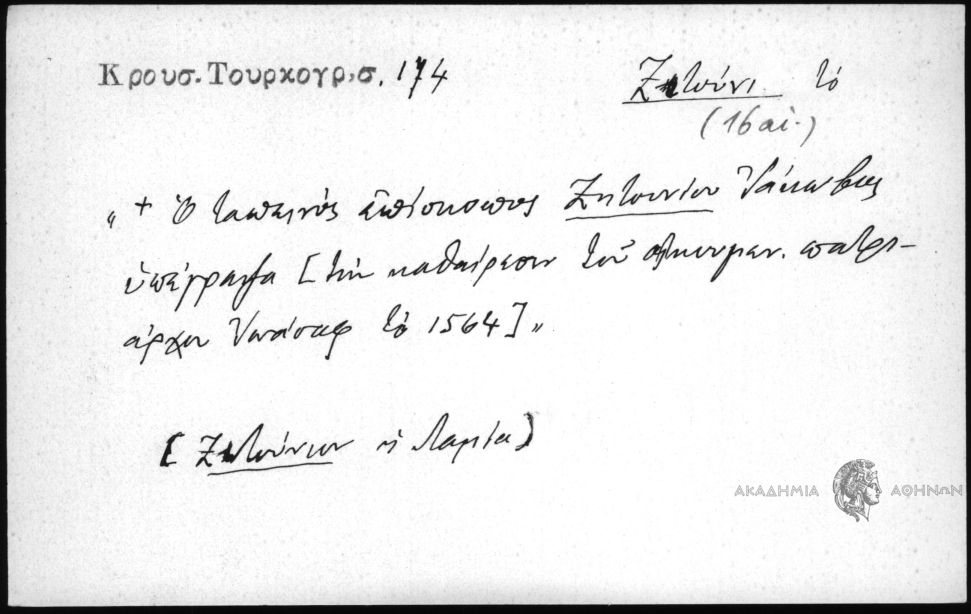 Κρουσ. Τουρκογρ, σ. 174
Ζητούνι τὸ
(16 αἰ.)
„ + Ὁ ταπεινὸς ἐπίσκοπος Ζητουνίου Ἰάκωβος
ὑπέγραψα [τὴν καθαίρεσιν τοῦ οἰκουμεν. πατρι-
άρχου Ἰωάσαφ τὸ 1564] „
[Ζητούνιον ἡ Λαμία]
ΑΚΑΔΗΜΙΑ ΑΘΗΝΩΝ